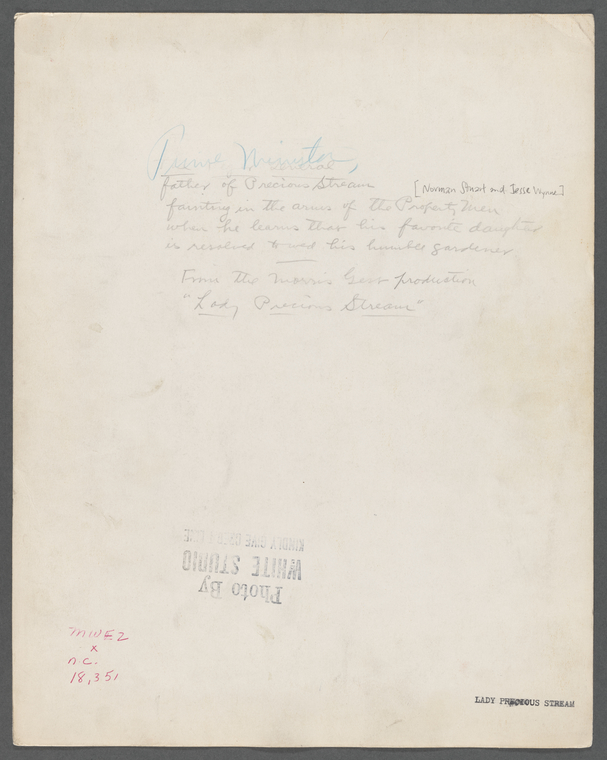 Prime Minister,
General
father of Precious Stream
[Norman Stuart and Jesse Wynne]
fainting in the arms of the Property Men
when he learns that his favorite daughter
is resolved to wed his humble gardener
From the Morris Gest production
"Lady Precious Stream"
Photo By
WHITE STUDIO
KINDLY GIVE CREDIT LINE
MWEZ
x
n.c.
18,351
LADY PRECIOUS STREAM